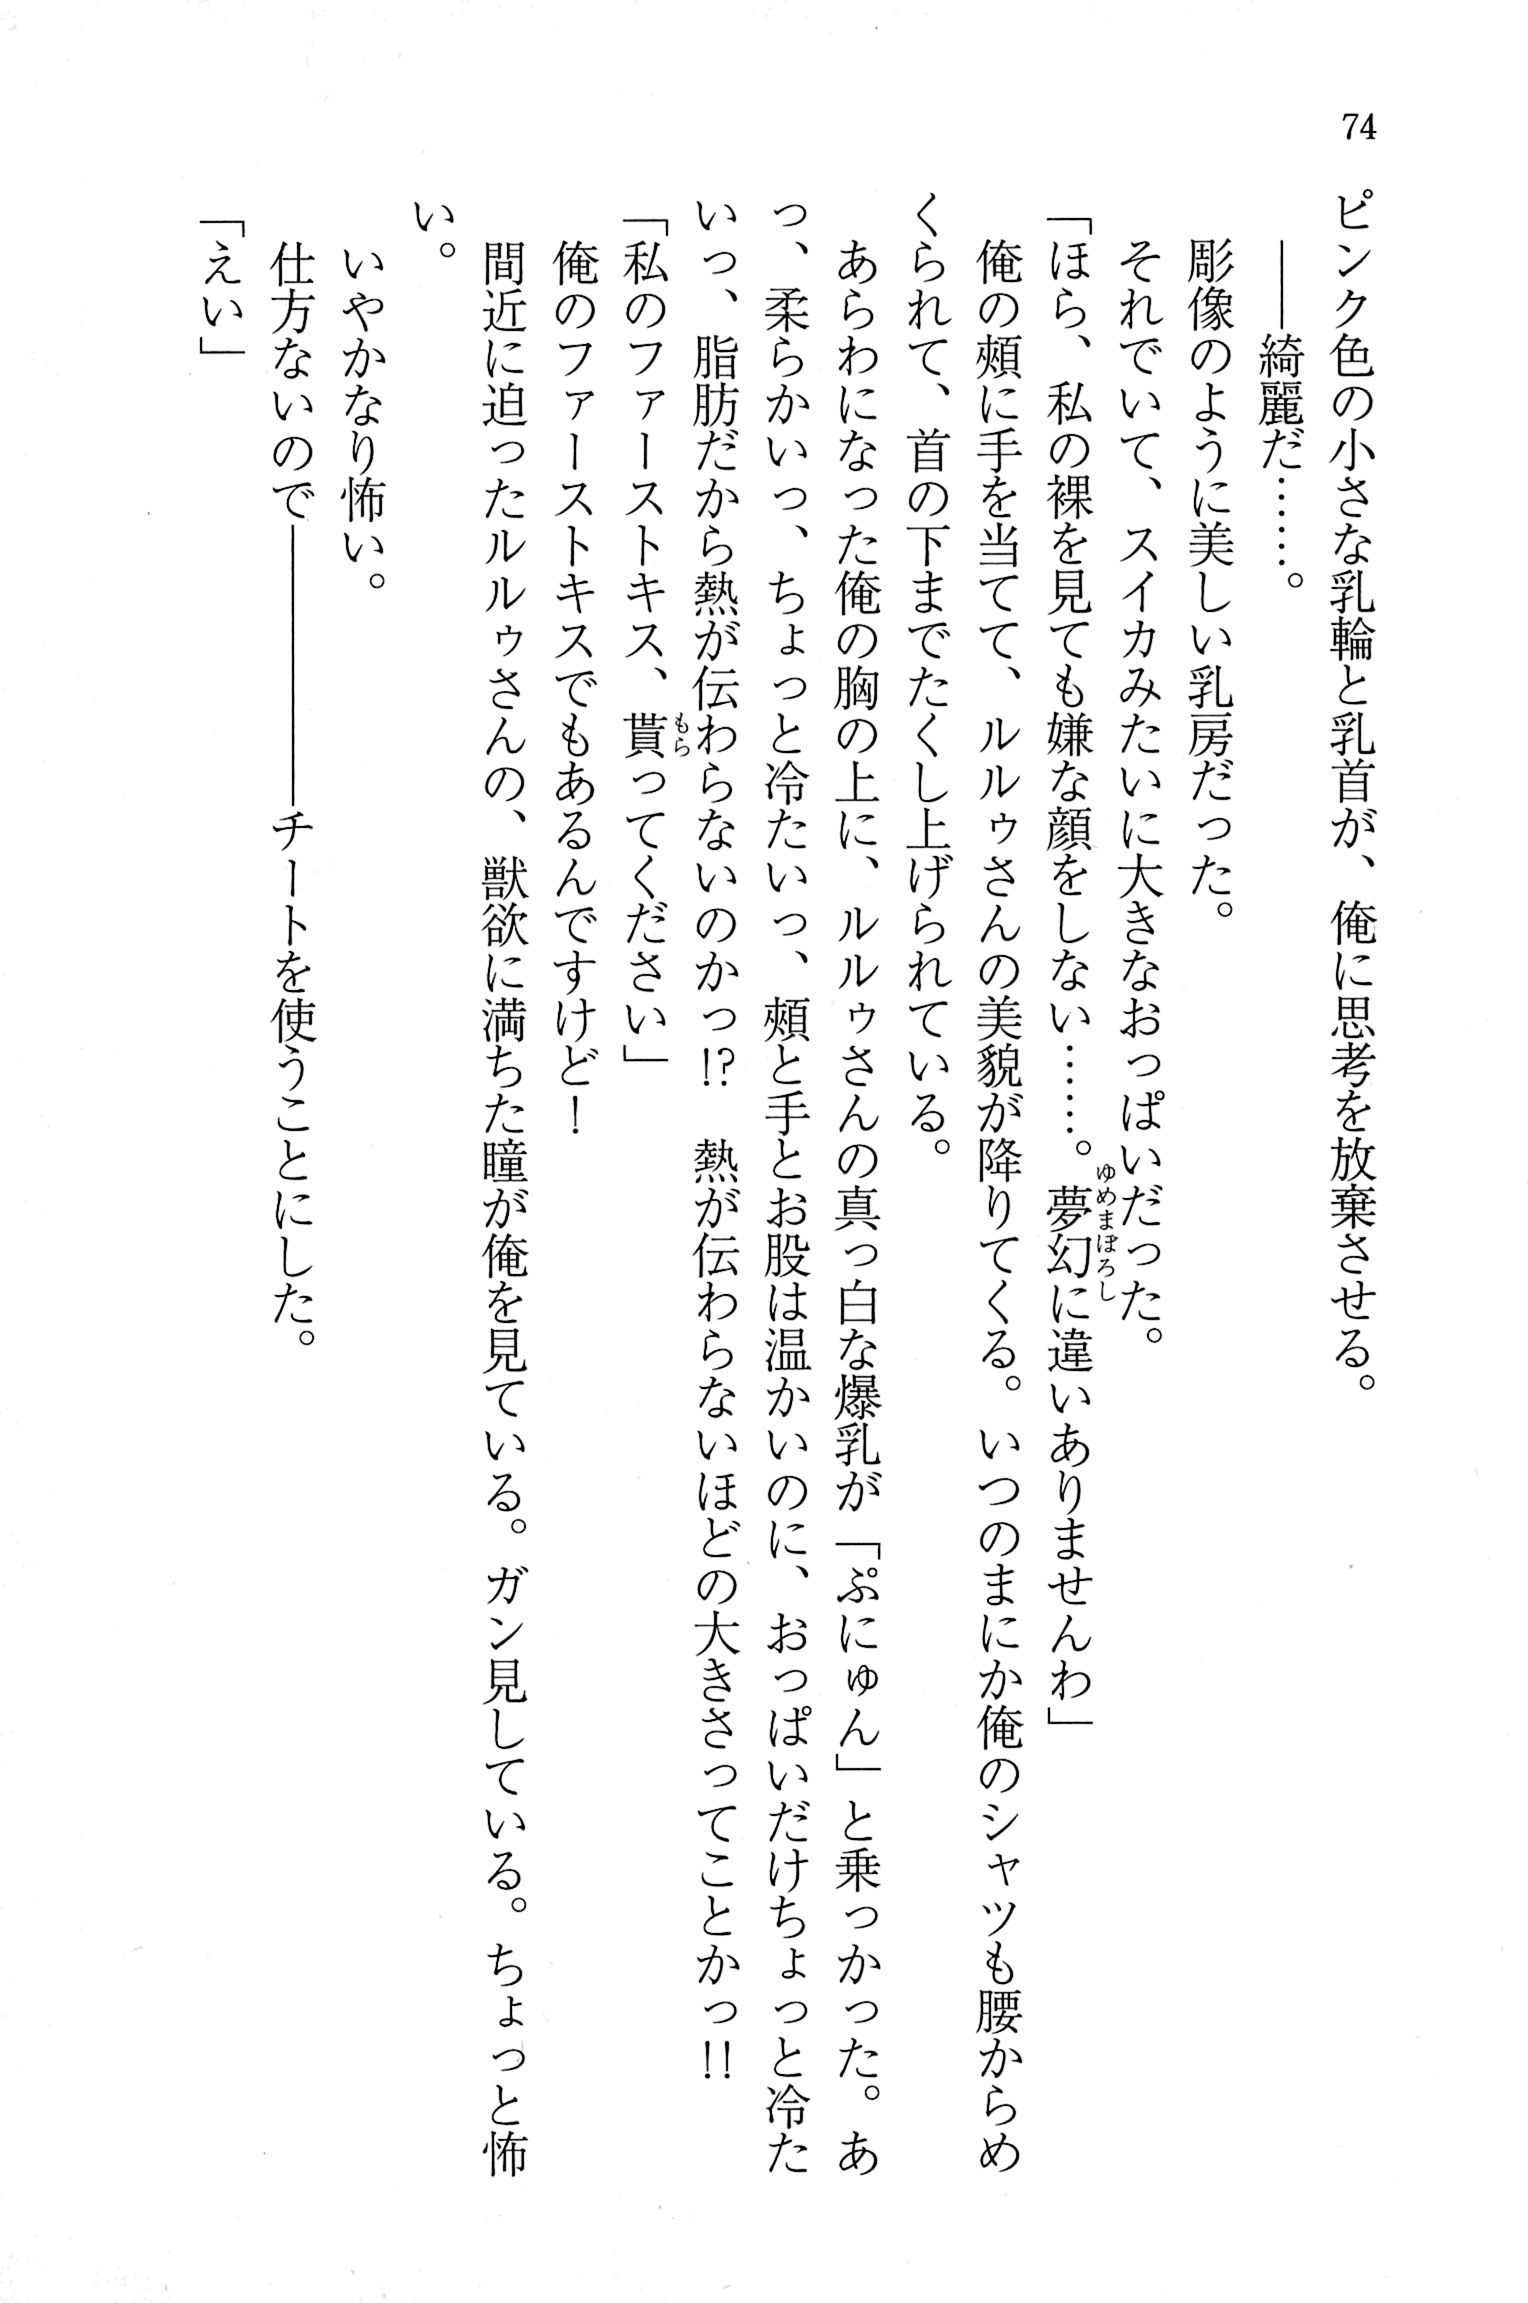 74
ピンク色の小さな乳輪と乳首が、俺に思考を放棄させる。
――綺麗だ……。
彫像のように美しい乳房だった。
それでいて、スイカみたいに大きなおっぱいだった。
「ほら、私の裸を見ても嫌な顔をしない……。夢幻に違いありませんわ」
ゆめまぼろし
俺の頰に手を当てて、ルルゥさんの美貌が降りてくる。いつのまにか俺のシャツも腰からめ
くられて、首の下までたくし上げられている。
あらわになった俺の胸の上に、ルルゥさんの真っ白な爆乳が「ぷにゅん」と乗っかった。あ
っ、柔らかいっ、ちょっと冷たいっ、頰と手とお股は温かいのに、おっぱいだけちょっと冷た
いっ、脂肪だから熱が伝わらないのかっ!?　熱が伝わらないほどの大きさってことかっ!!
「私のファーストキス、貰ってください」
もら
俺のファーストキスでもあるんですけど！
間近に迫ったルルゥさんの、獣欲に満ちた瞳が俺を見ている。ガン見している。ちょっと怖
い。
いやかなり怖い。
仕方ないので――――――チートを使うことにした。
「えい」